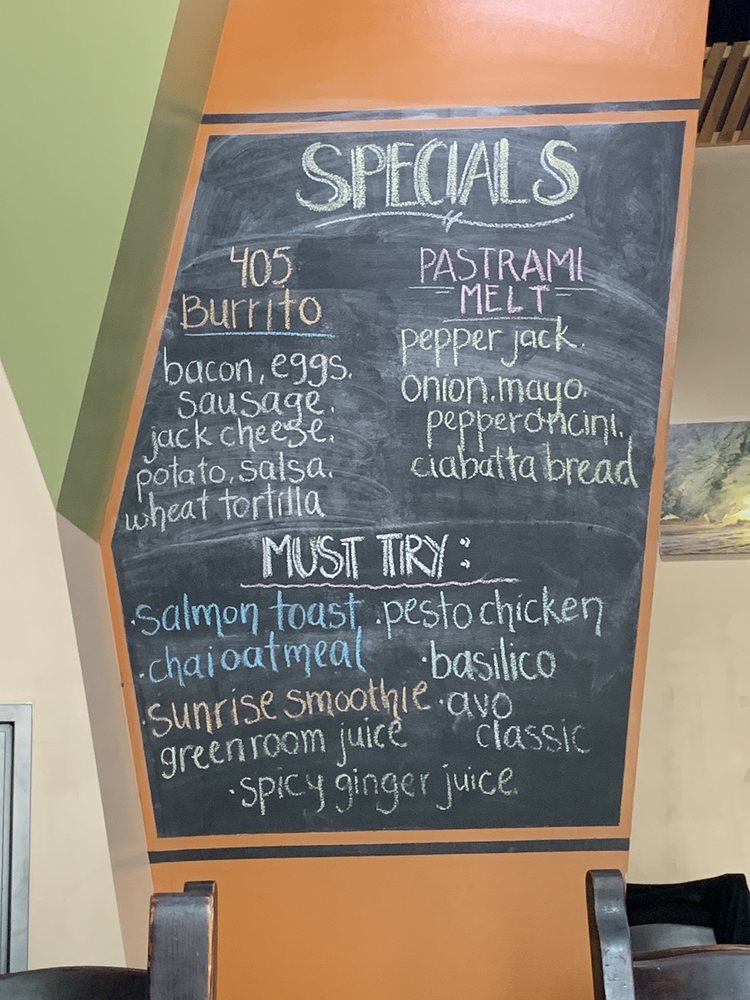 SPECIALS
405
Burrito
bacon, eggs.
sausage.
jack cheese.
potato, salsa.
wheat tortilla
PASTRAMI
MELT
pepper jack.
onion. mayo.
pepperoncini.
ciabatta bread
MUST TRY:
·salmon toast ·pesto chicken
·chai oatmeal ·basilico
·sunrise smoothie ·avo
greenroom juice classic
·spicy ginger juice.